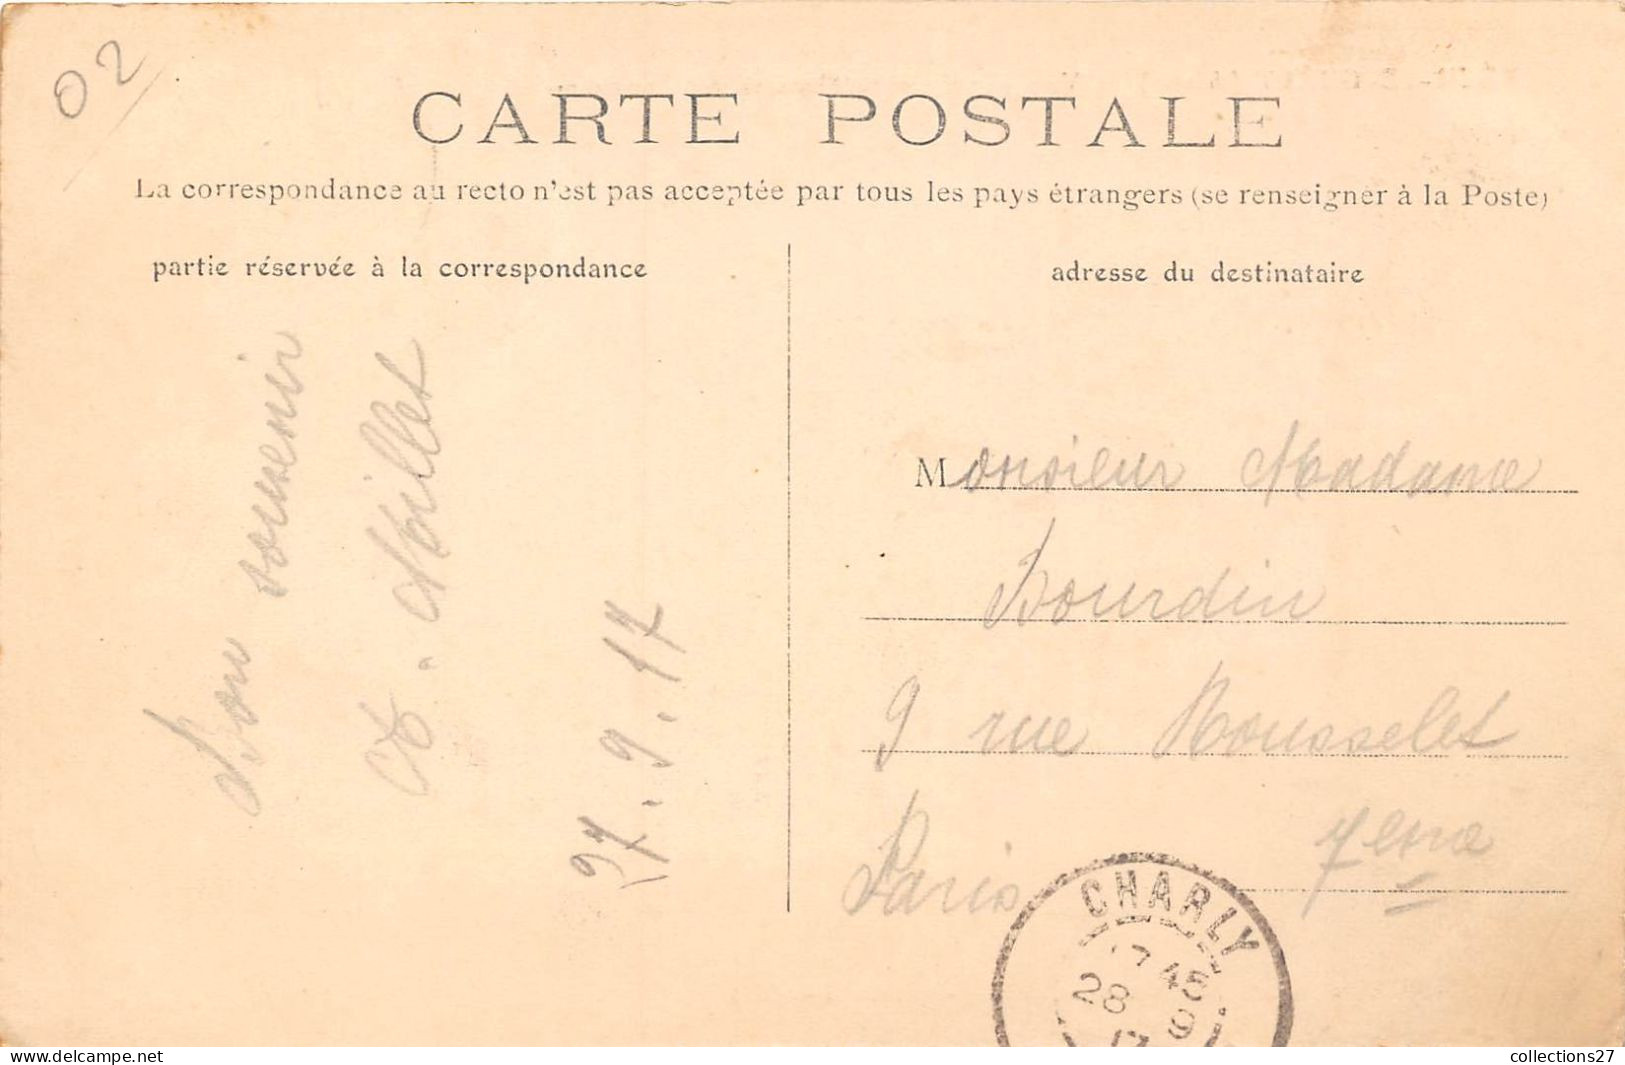 02
CARTE POSTALE
La correspondance au recto n'est pas acceptée par tous les pays étrangers (se renseigner à la Poste)
partie réservée à la correspondance
adresse du destinataire
Bon souvenir
Ct. Millet
27.9.17
Monsieur Madame
Bourdin
9 rue Rousselet
Paris 7eme
CHARLY
45
28 9
17
collections27